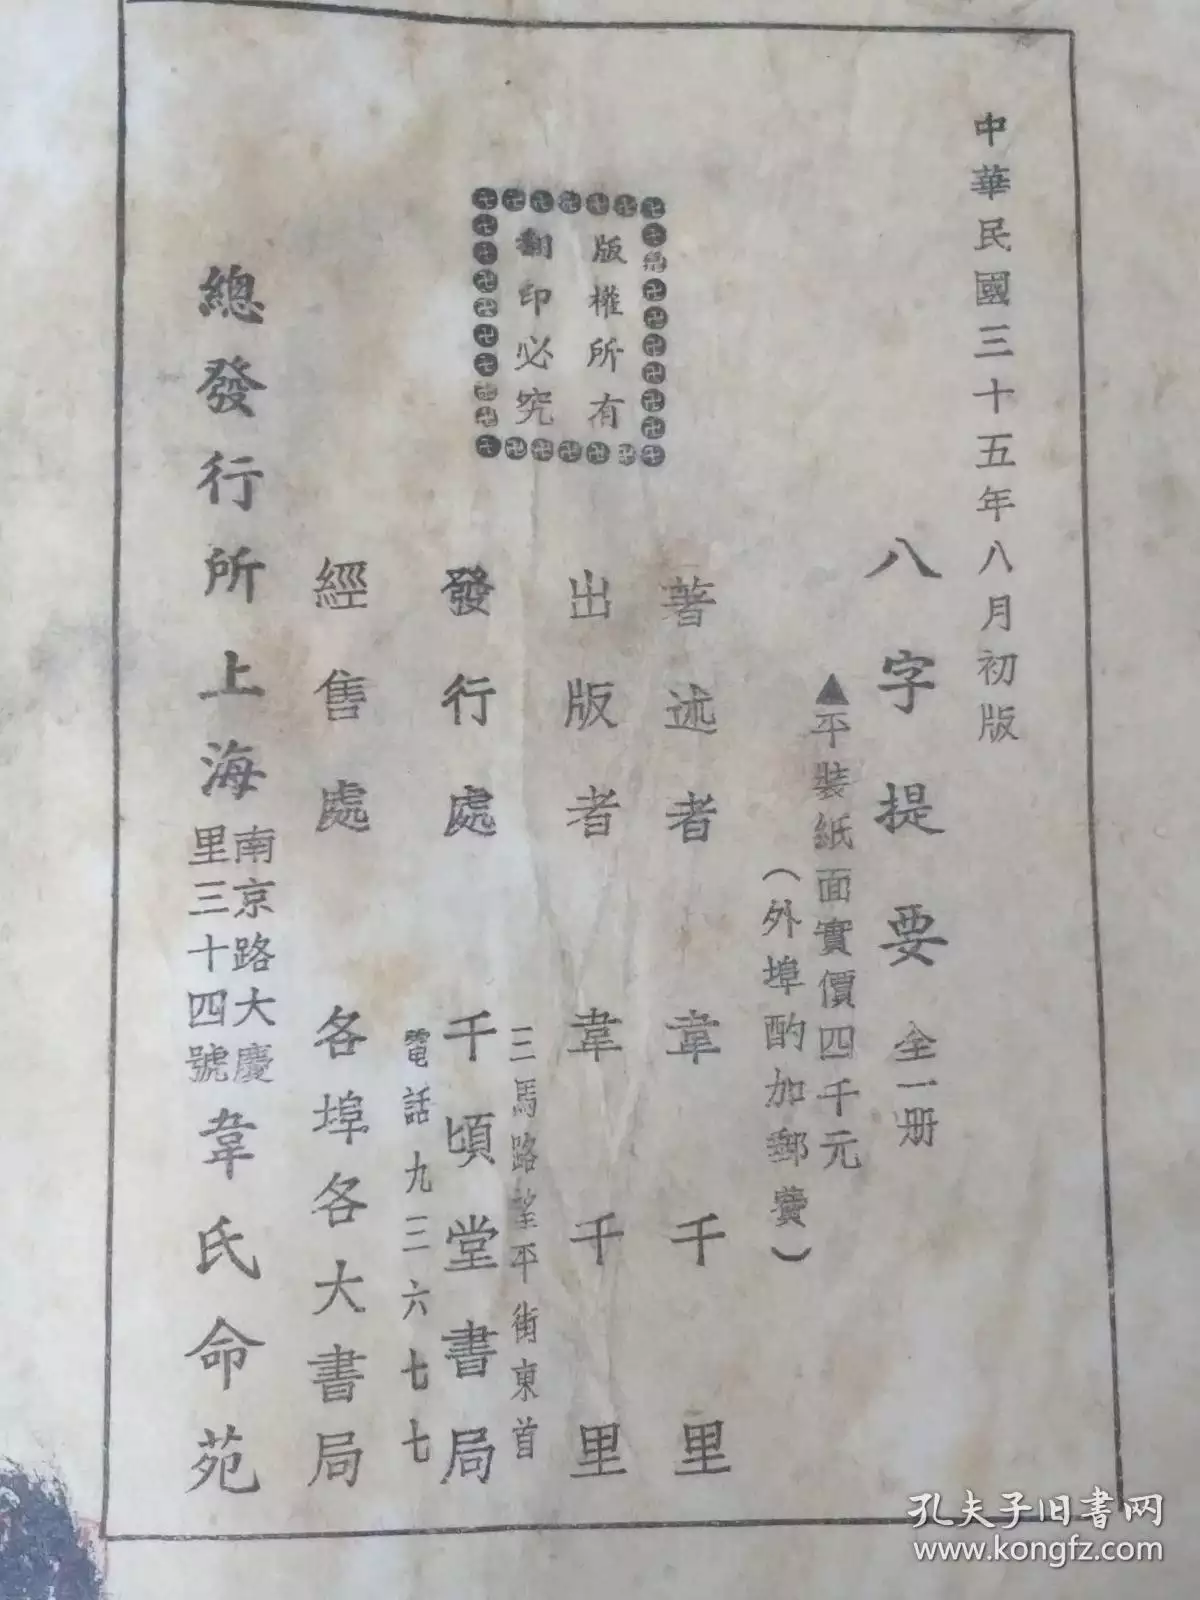 中華民國三十五年八月初版
八字提要 全一册
▲平裝紙面實價四千元
(外埠酌加郵費)
版權所有
翻印必究
著述者 韋千里
出版者 韋千里
三馬路望平街東首
發行處 千頃堂書局
電話九三六七七
經售處 各埠各大書局
總發行所上海南京路大慶里三十四號韋氏命苑
孔夫子旧书网
www.kongfz.com